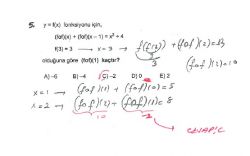 5. y = f(x) fonksiyonu için,
(fof)(x) + (fof)(x – 1) = x² + 4
f(3) = 3 → x = 3 → f(f(3)) + (fof)(2) = 13
3
3
(fof)(2) = 10
olduğuna göre (fof)(1) kaçtır?
A) –6 B) –4 C) –2 D) 0 E) 2
x = 1 → (fof)(1) + (fof)(0) = 5
x = 2 → (fof)(2) + (fof)(1) = 8
10 –2
CEVAP: C